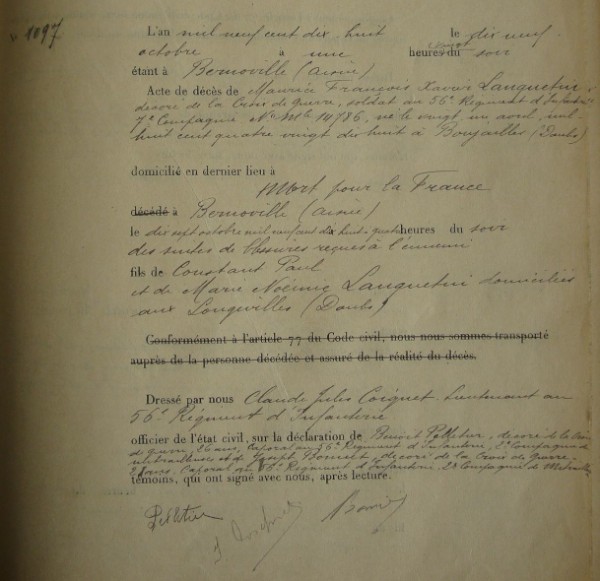 1097
L'an mil neuf cent dix huit le dix neuf
octobre à une heures du soir
étant à Bernoville (Aisne)
Acte de décès de Maurice François Xavier Languetin,
décoré de la Croix de Guerre, soldat au 56e Régiment d'Infanterie
7e Compagnie No Mle 14786, né le vingt un avril, mil
huit cent quatre vingt dix huit à Boujailles (Doubs)
domicilié en dernier lieu à
Mort pour la France
décédé à Bernoville (Aisne)
le dix sept octobre mil neuf cent dix huit - quatre heures du soir
des suites de blessures reçues à l'ennemi
fils de Constant Paul
et de Marie Noémie Languetin domiciliés
aux Longevilles (Doubs)
Conformément à l'article 77 du Code civil, nous nous sommes transporté
auprès de la personne décédée et assuré de la réalité du décès.
Dressé par nous Claude Jules Coignet Lieutenant au
56e Régiment d'Infanterie
officier de l'état civil, sur la déclaration de Benoit Pelletier, décoré de la Croix
de guerre, 26 ans, Caporal au 56e Régiment d'Infanterie, 2e Compagnie de
mitrailleuses et de Joseph décoré de la Croix de Guerre
ans, Caporal au 56e Régiment d'Infanterie, 2e Compagnie de Mitrailleuses
témoins, qui ont signé avec nous, après lecture.
Pelletier